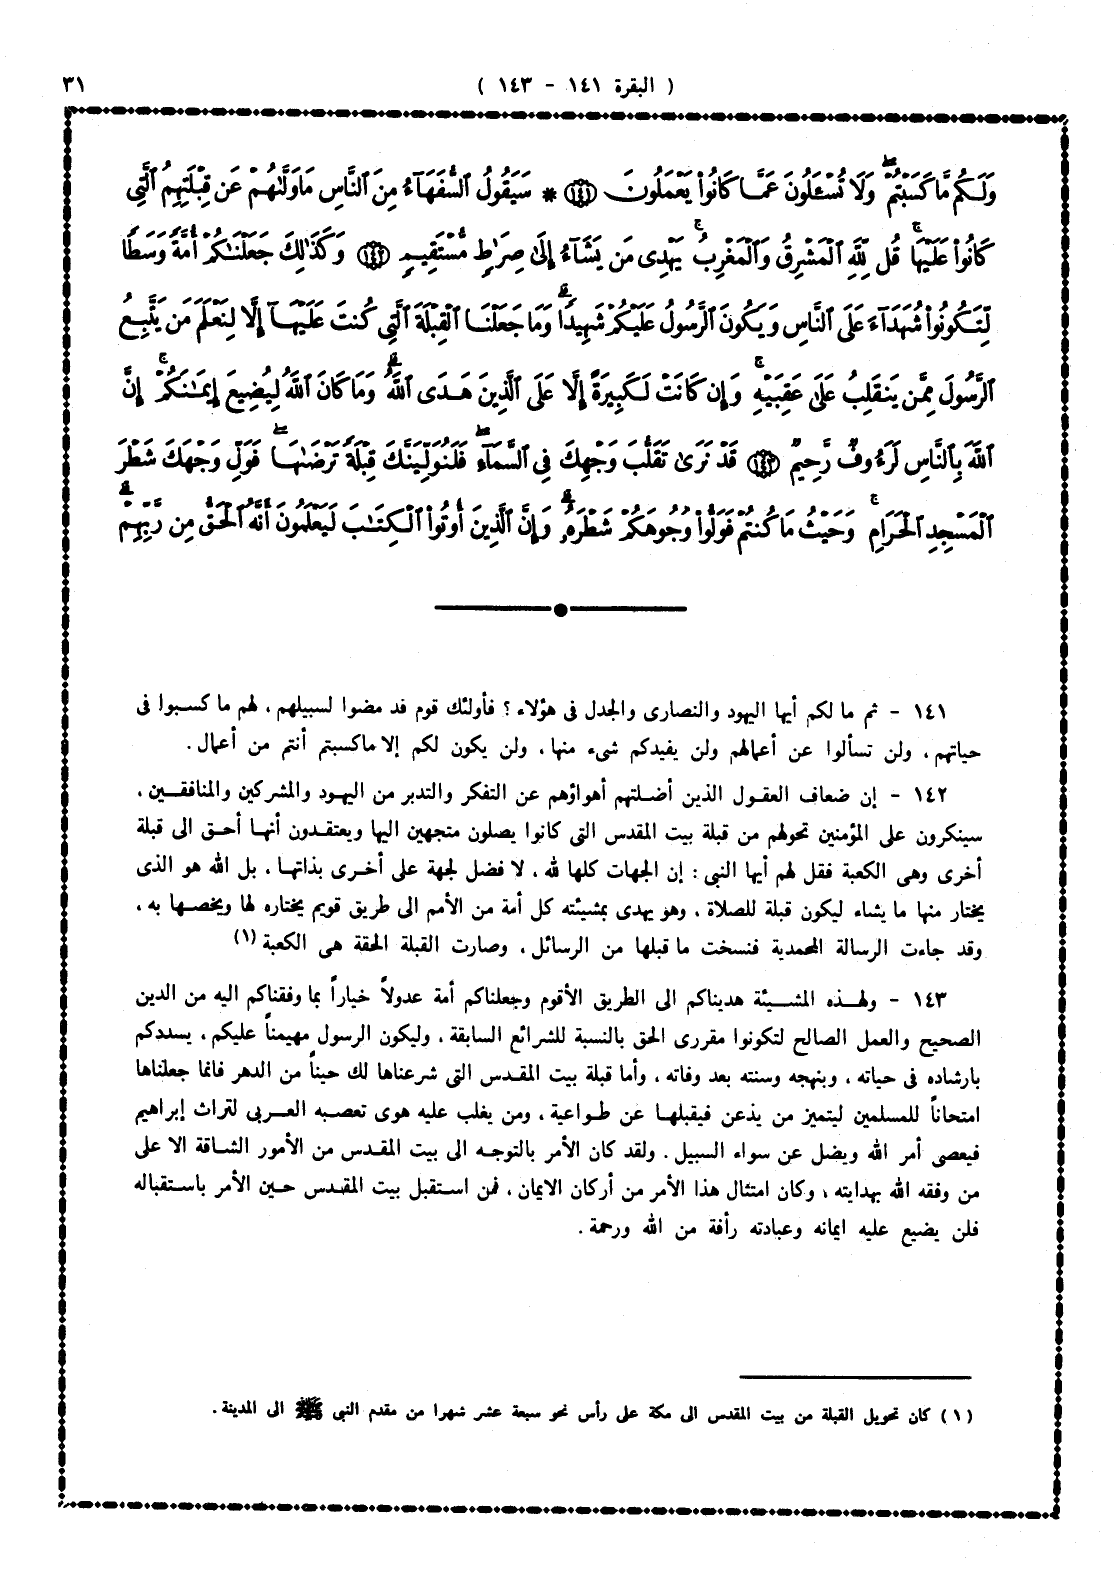 ( البقرة ١٤١ - ١٤٣ )
٣١
وَلَكُم مَّا كَسَبْتُمْ ۖ وَلَا تُسْـَٔلُونَ عَمَّا كَانُوا۟ يَعْمَلُونَ ۝١٤١ * سَيَقُولُ ٱلسُّفَهَآءُ مِنَ ٱلنَّاسِ مَا وَلَّىٰهُمْ عَن قِبْلَتِهِمُ ٱلَّتِى
كَانُوا۟ عَلَيْهَا ۚ قُل لِّلَّهِ ٱلْمَشْرِقُ وَٱلْمَغْرِبُ ۚ يَهْدِى مَن يَشَآءُ إِلَىٰ صِرَٰطٍ مُّسْتَقِيمٍ ۝١٤٢ وَكَذَٰلِكَ جَعَلْنَٰكُمْ أُمَّةً وَسَطًا
لِّتَكُونُوا۟ شُهَدَآءَ عَلَى ٱلنَّاسِ وَيَكُونَ ٱلرَّسُولُ عَلَيْكُمْ شَهِيدًا ۗ وَمَا جَعَلْنَا ٱلْقِبْلَةَ ٱلَّتِى كُنتَ عَلَيْهَآ إِلَّا لِنَعْلَمَ مَن يَتَّبِعُ
ٱلرَّسُولَ مِمَّن يَنقَلِبُ عَلَىٰ عَقِبَيْهِ ۚ وَإِن كَانَتْ لَكَبِيرَةً إِلَّا عَلَى ٱلَّذِينَ هَدَى ٱللَّهُ ۗ وَمَا كَانَ ٱللَّهُ لِيُضِيعَ إِيمَٰنَكُمْ ۚ إِنَّ
ٱللَّهَ بِٱلنَّاسِ لَرَءُوفٌ رَّحِيمٌ ۝١٤٣ قَدْ نَرَىٰ تَقَلُّبَ وَجْهِكَ فِى ٱلسَّمَآءِ ۖ فَلَنُوَلِّيَنَّكَ قِبْلَةً تَرْضَىٰهَا ۖ فَوَلِّ وَجْهَكَ شَطْرَ
ٱلْمَسْجِدِ ٱلْحَرَامِ ۚ وَحَيْثُ مَا كُنتُمْ فَوَلُّوا۟ وُجُوهَكُمْ شَطْرَهُۥ ۗ وَإِنَّ ٱلَّذِينَ أُوتُوا۟ ٱلْكِتَٰبَ لَيَعْلَمُونَ أَنَّهُ ٱلْحَقُّ مِن رَّبِّهِمْ ۗ
١٤١ - ثم ما لكم أيها اليهود والنصارى والجدل فى هؤلاء ؟ فأولئك قوم قد مضوا لسبيلهم ، لهم ما كسبوا فى
حياتهم ، ولن تسألوا عن أعمالهم ولن يفيدكم شىء منها ، ولن يكون لكم إلا ماكسبتم أنتم من أعمال .
١٤٢ - إن ضعاف العقول الذين أضلتهم أهواؤهم عن التفكر والتدبر من اليهود والمشركين والمنافقين ،
سينكرون على المؤمنين تحولهم من قبلة بيت المقدس التى كانوا يصلون متجهين اليها ويعتقدون أنها أحق الى قبلة
أخرى وهى الكعبة فقل لهم أيها النبى : إن الجهات كلها لله ، لا فضل لجهة على أخرى بذاتها ، بل الله هو الذى
يختار منها ما يشاء ليكون قبلة للصلاة ، وهو يهدى بمشيئته كل أمة من الأمم الى طريق قويم يختاره لها ويخصها به ،
وقد جاءت الرسالة المحمدية فنسخت ما قبلها من الرسائل ، وصارت القبلة الحقة هى الكعبة (١)
١٤٣ - ولهذه المشيئة هديناكم الى الطريق الأقوم وجعلناكم أمة عدولاً خياراً بما وفقناكم اليه من الدين
الصحيح والعمل الصالح لتكونوا مقررى الحق بالنسبة للشرائع السابقة ، وليكون الرسول مهيمناً عليكم ، يسددكم
بارشاده فى حياته ، وبنهجه وسنته بعد وفاته ، وأما قبلة بيت المقدس التى شرعناها لك حيناً من الدهر فانما جعلناها
امتحاناً للمسلمين ليتميز من يذعن فيقبلها عن طواعية ، ومن يغلب عليه هوى تعصبه العربى لتراث إبراهيم
فيعصى أمر الله ويضل عن سواء السبيل . ولقد كان الأمر بالتوجه الى بيت المقدس من الأمور الشاقة الا على
من وفقه الله بهدايته ، وكان امتثال هذا الأمر من أركان الايمان ، فمن استقبل بيت المقدس حين الأمر باستقباله
فلن يضيع عليه ايمانه وعبادته رأفة من الله ورحمة .
(١) كان تحويل القبلة من بيت المقدس الى مكة على رأس نحو سبعة عشر شهرا من مقدم النبى ﷺ الى المدينة .